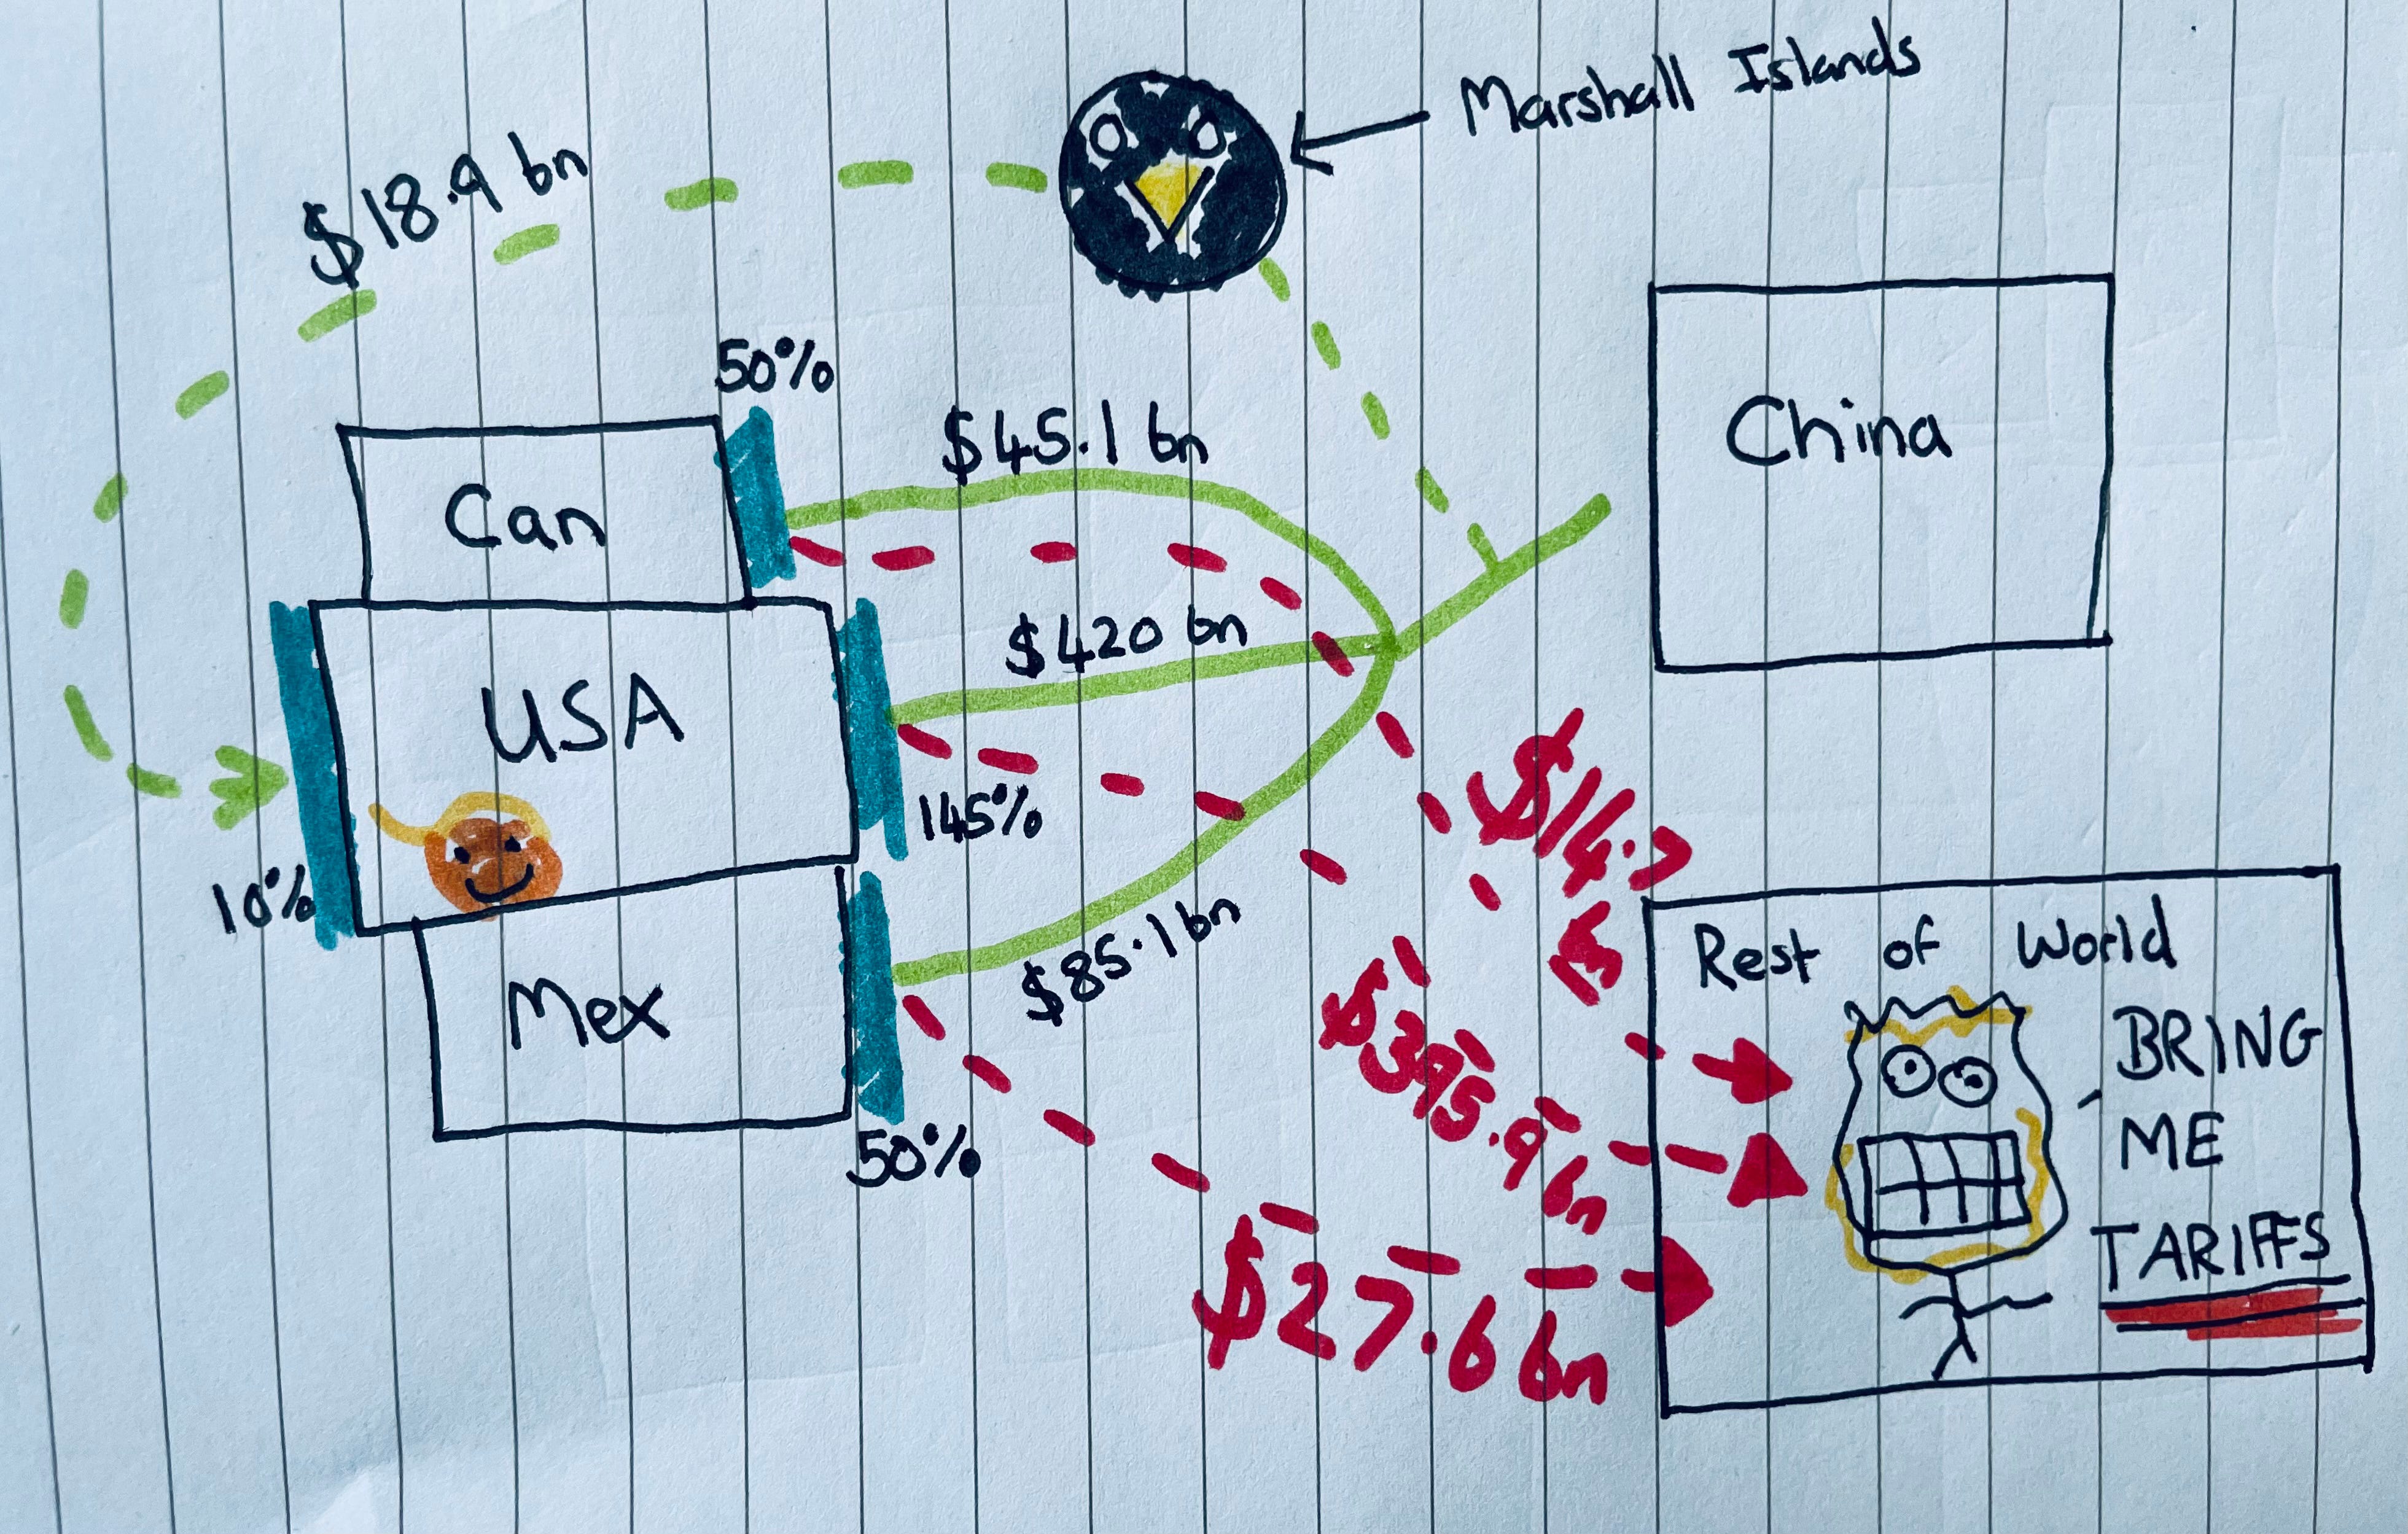 Marshall Islands
$18.9 bn
50%
$45.1 bn
China
Can
$420 bn
USA
145%
$14.7
bn
10%
$85.1 bn
Rest of World
Mex
$395.9 bn
BRING
ME
TARIFFS
50%
$27.6 bn